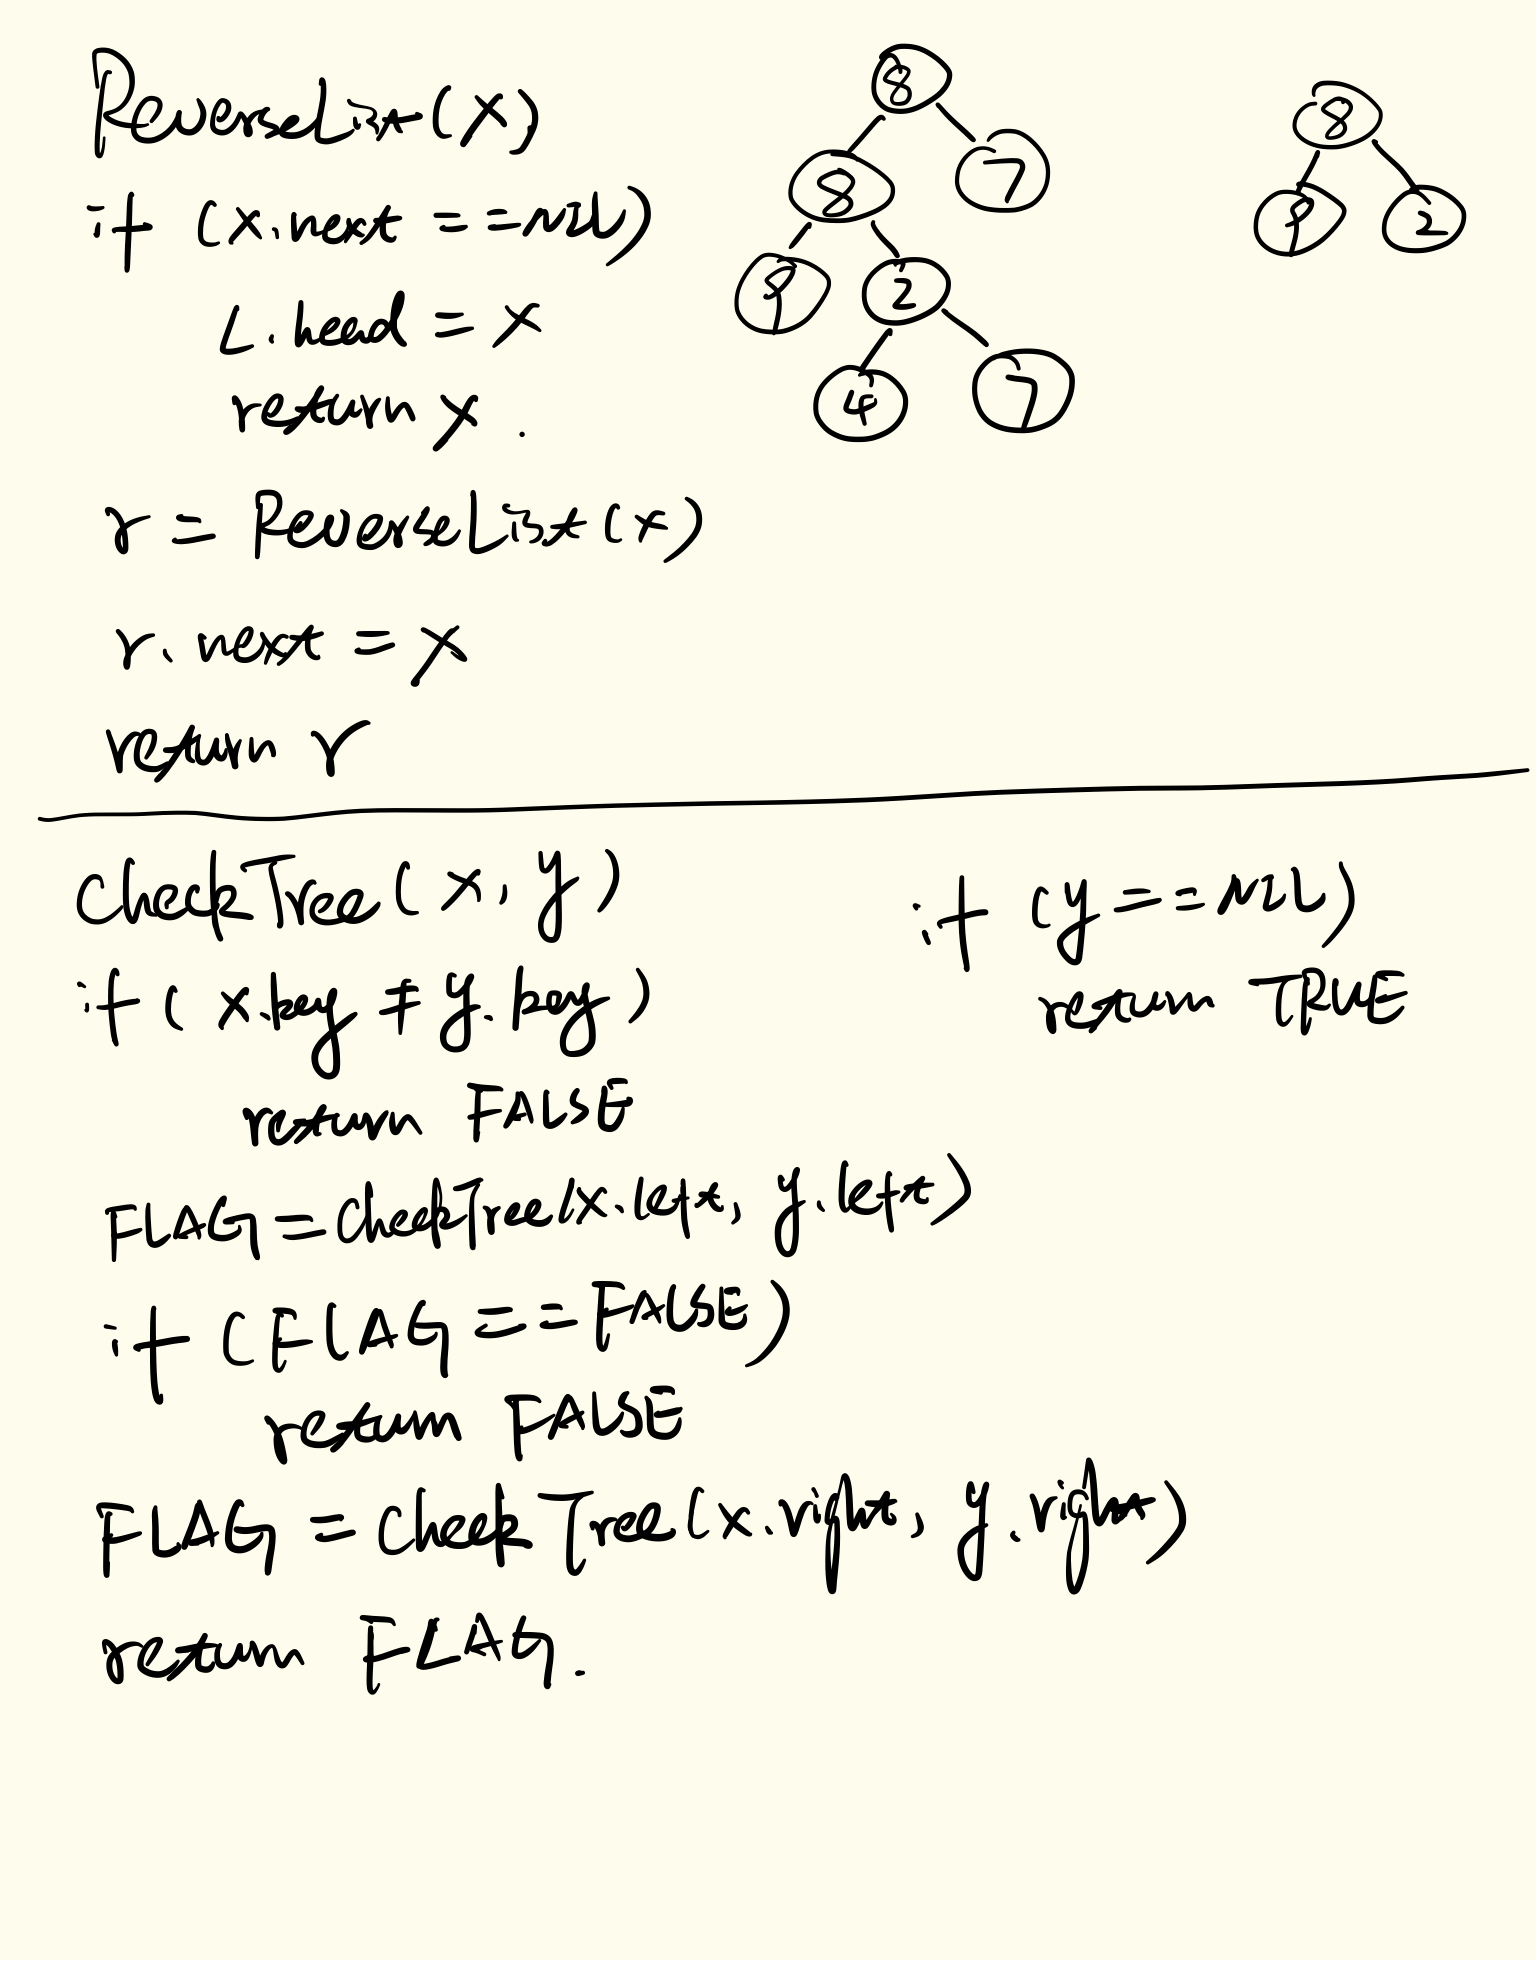 ReverseList(x)
if (x.next == NIL)
L.head = x
return x.
r = ReverseList(x)
r.next = x
return r
8
8 7
9 2
4 7
8
9 2
CheckTree(x, y)
if (x.key ≠ y.key)
return FALSE
FLAG = CheckTree(x.left, y.left)
if (FLAG == FALSE)
return FALSE
FLAG = CheckTree(x.right, y.right)
return FLAG.
if (y == NIL)
return TRUE